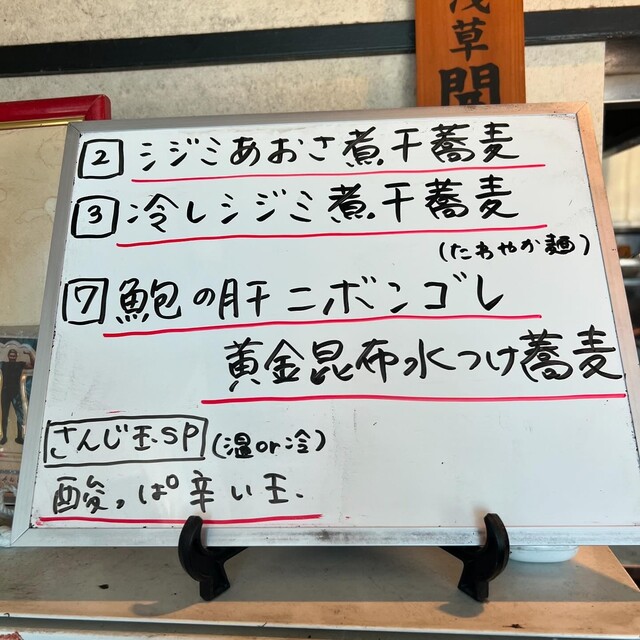 浅草開
② シジミあおさ煮干蕎麦
③ 冷しシジミ煮干蕎麦
(たわやか麺)
⑦ 鮑の肝ニボンゴレ
黄金昆布水つけ蕎麦
さんじ玉SP (温or冷)
酸っぱ辛い玉.